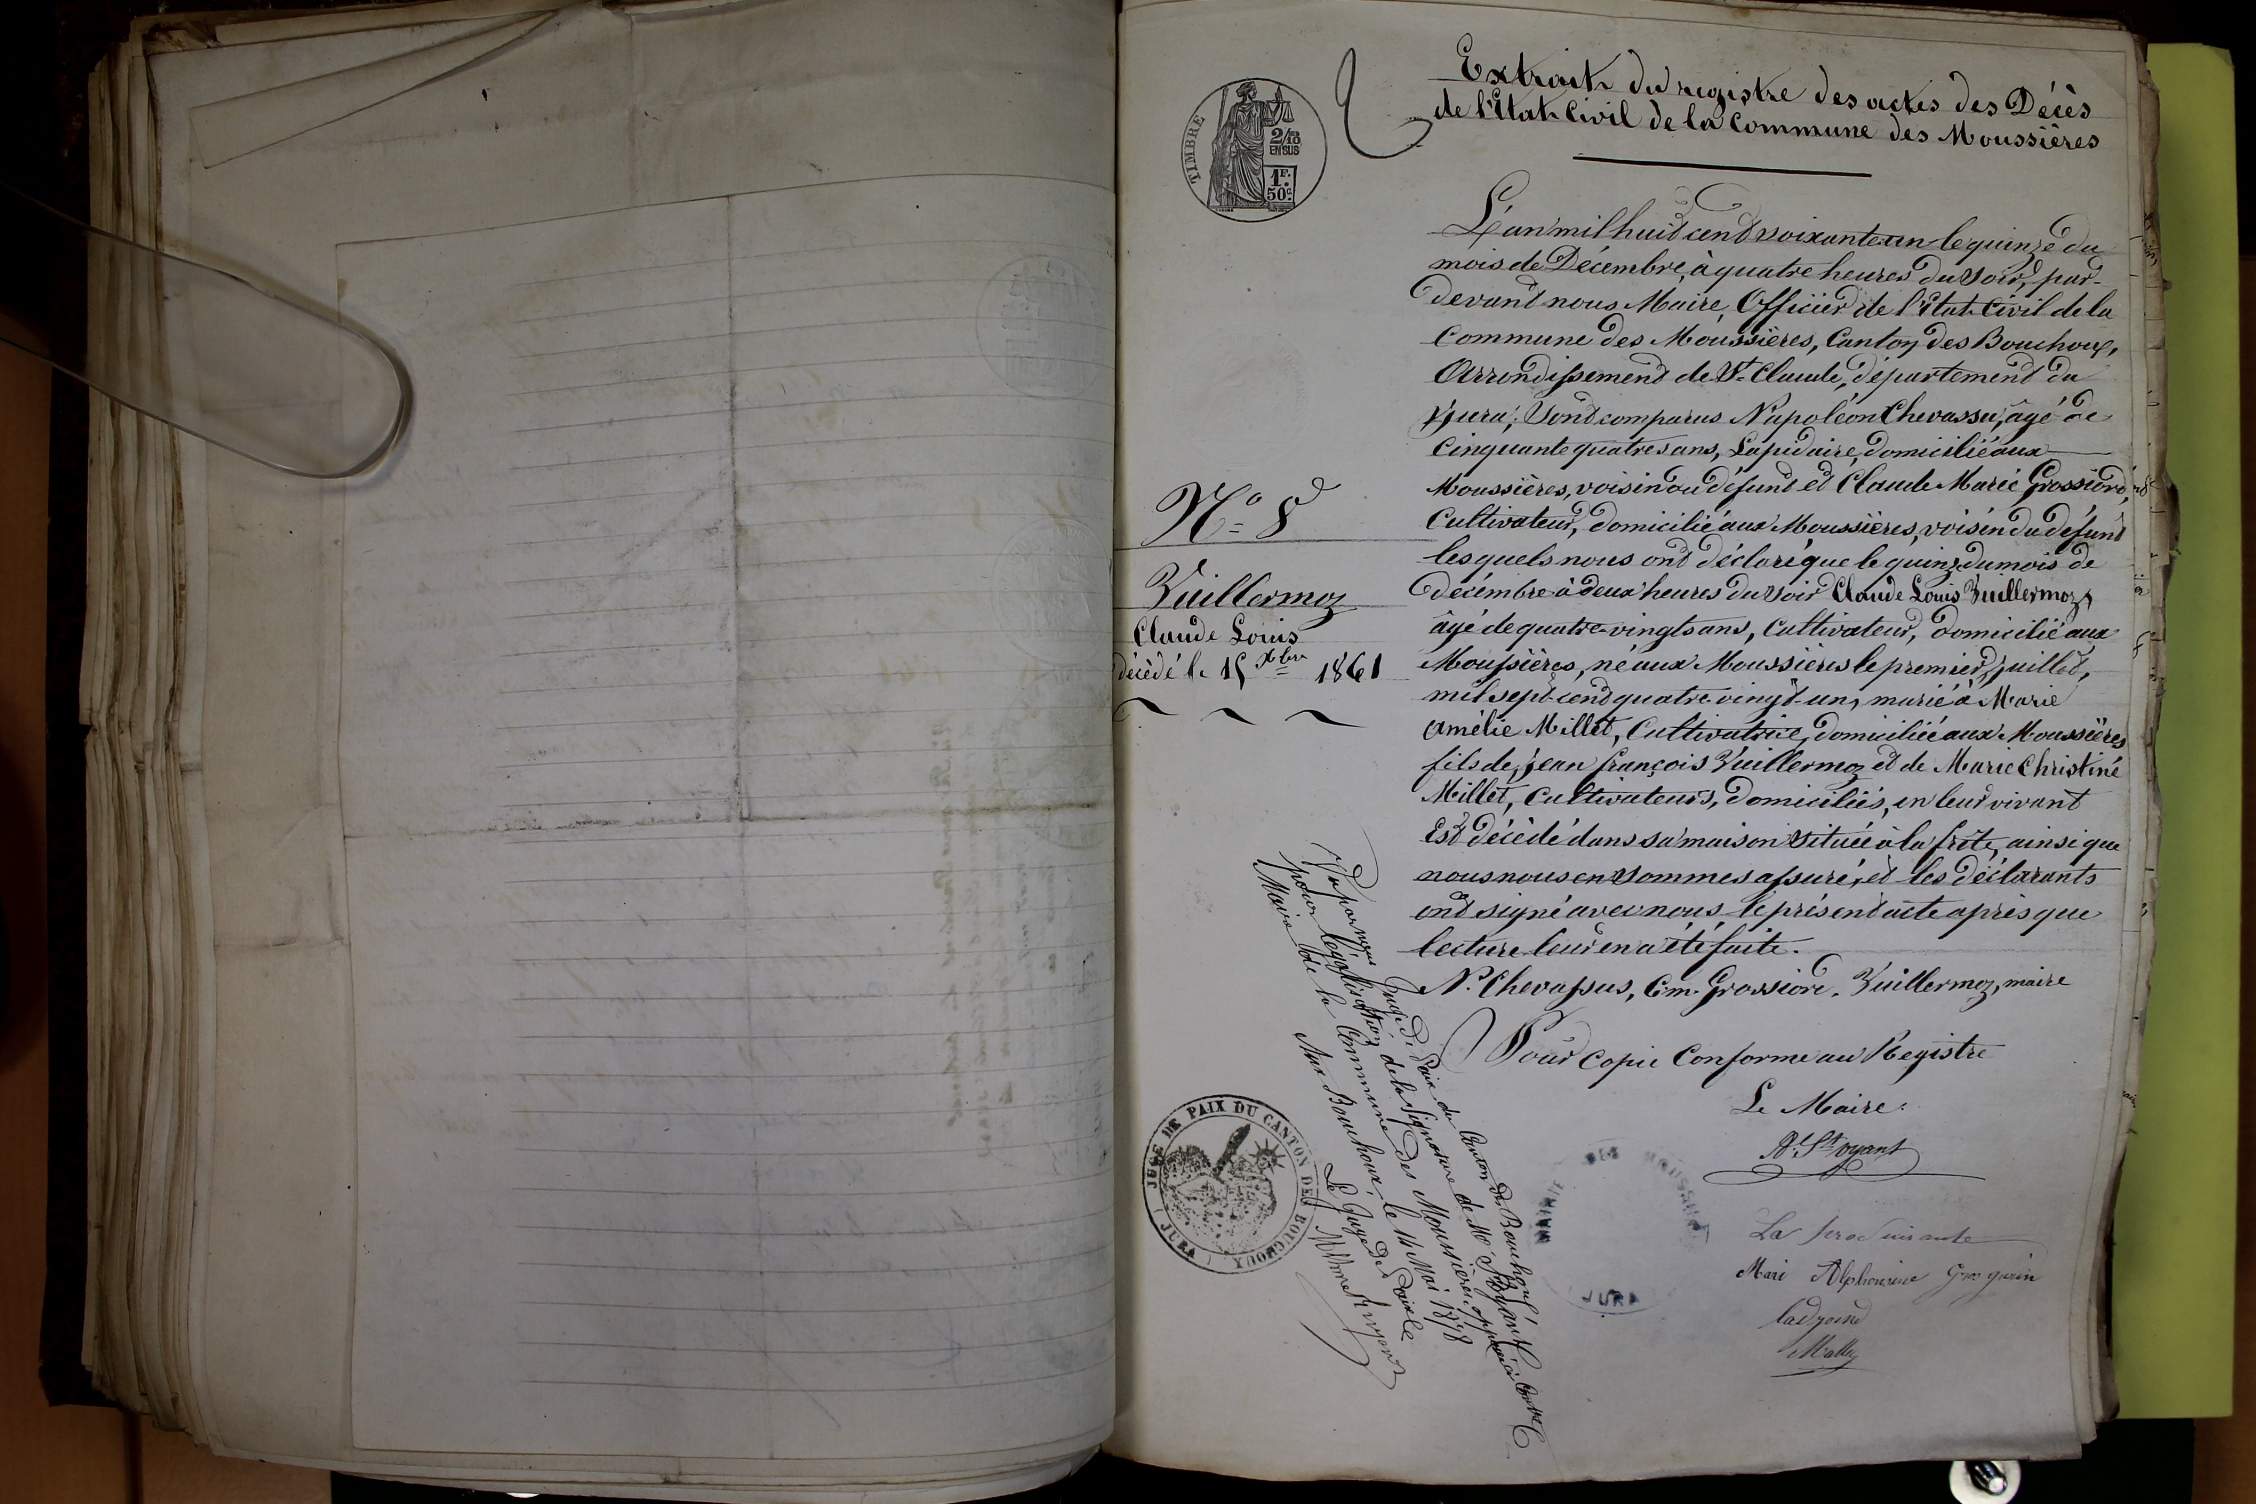 Extrait du registre des actes des Décès
de l'Etat Civil de la Commune des Moussières
TIMBRE
2/10
EN SUS
1F.
50c.
L'an mil huit cent soixante un le quinze du
mois de Décembre, à quatre heures du soir, par-
devant nous Maire, Officier de l'Etat Civil de la
Commune des Moussières, Canton des Bouchoux,
Arrondissement de St Claude, département du
Jura; Sont comparus Napoléon Chevassu, âgé de
Cinquante quatre ans, Lapidaire, domicilié aux
Moussières, voisin du défunt et Claude Marie Grossiord,
Cultivateur, domicilié aux Moussières, voisin du défunt
lesquels nous ont déclaré que le quinze du mois de
décembre à deux heures du soir Claude Louis Vuillermoz,
âgé de quatre-vingts ans, Cultivateur, domicilié aux
Moussières, né aux Moussières le premier juillet,
mil sept cent quatre vingt-un, marié à Marie
Amélie Millet, Cultivatrice, domiciliée aux Moussières
fils de, Jean François Vuillermoz et de Marie Christine
Millet, Cultivateurs, domiciliés, en leur vivant
Est décédé dans sa maison située à la frête, ainsi que
nous nous en sommes assuré, et les déclarants
ont signé avec nous le présent acte après que
lecture leur en a été faite.
N. Chevassus, C.m. Grossiord, Vuillermoz, maire
Pour Copie Conforme au Registre
Le Maire:
St oyant
N° 8
Vuillermoz
Claude Louis
décédé le 15 Xbre 1861
Vu par nous Juge de Paix du Canton des Bouchoux
pour légalisation de la Signature de Mr St Oyant
Maire de la Commune des Moussières, apposée ci-contre
Aux Bouchoux, le 14 Mai 1878
Le Juge de Paix
JUGE DE PAIX DU CANTON DES BOUCHOUX
(JURA)
MAIRIE DES MOUSSIÈRES
JURA
La
Mari Alphonsine Grosgurin